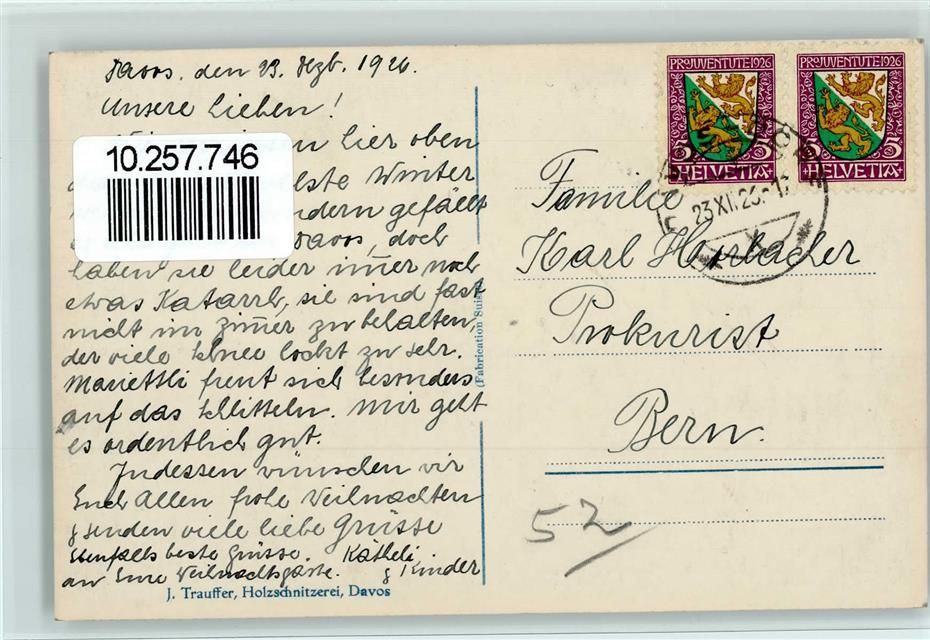 Davos, den 23. Dezb. 1926.
Unsere Lieben!
hier oben
Winter
gefällt
Davos, doch
haben sie leider im̄er noch
etwas Katarrh, sie sind fast
nicht im Zim̄er zu behalten,
der viele Schnee lockt zu sehr.
Mariettli freut sich besonders
auf das Schlitteln. Mir geht
es ordentlich gut.
Indessen wünschen wir
Euch Allen frohe Weihnachten
& senden viele liebe Grüsse
Ebenfalls beste Grüsse Kätheli
an Eure Weihnachtsgäste. & Kinder
J. Trauffer, Holzschnitzerei, Davos
10.257.746
(Fabrication Suisse)
PRO JUVENTUTE 1926
5 5
HELVETIA
PRO JUVENTUTE 1926
5 5
HELVETIA
23 XII. 26
Familie
Karl
Prokurist
Bern.
52